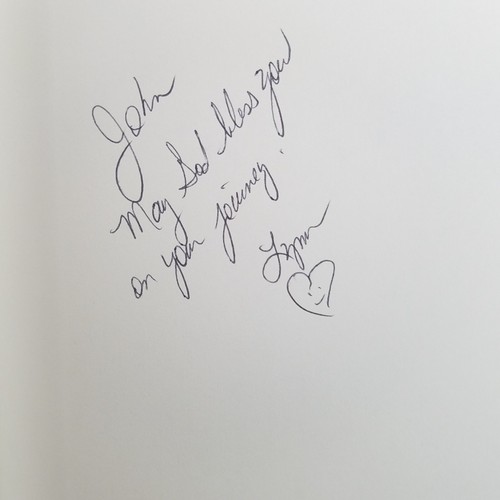 John
May God bless you
on your journey.
Lynn